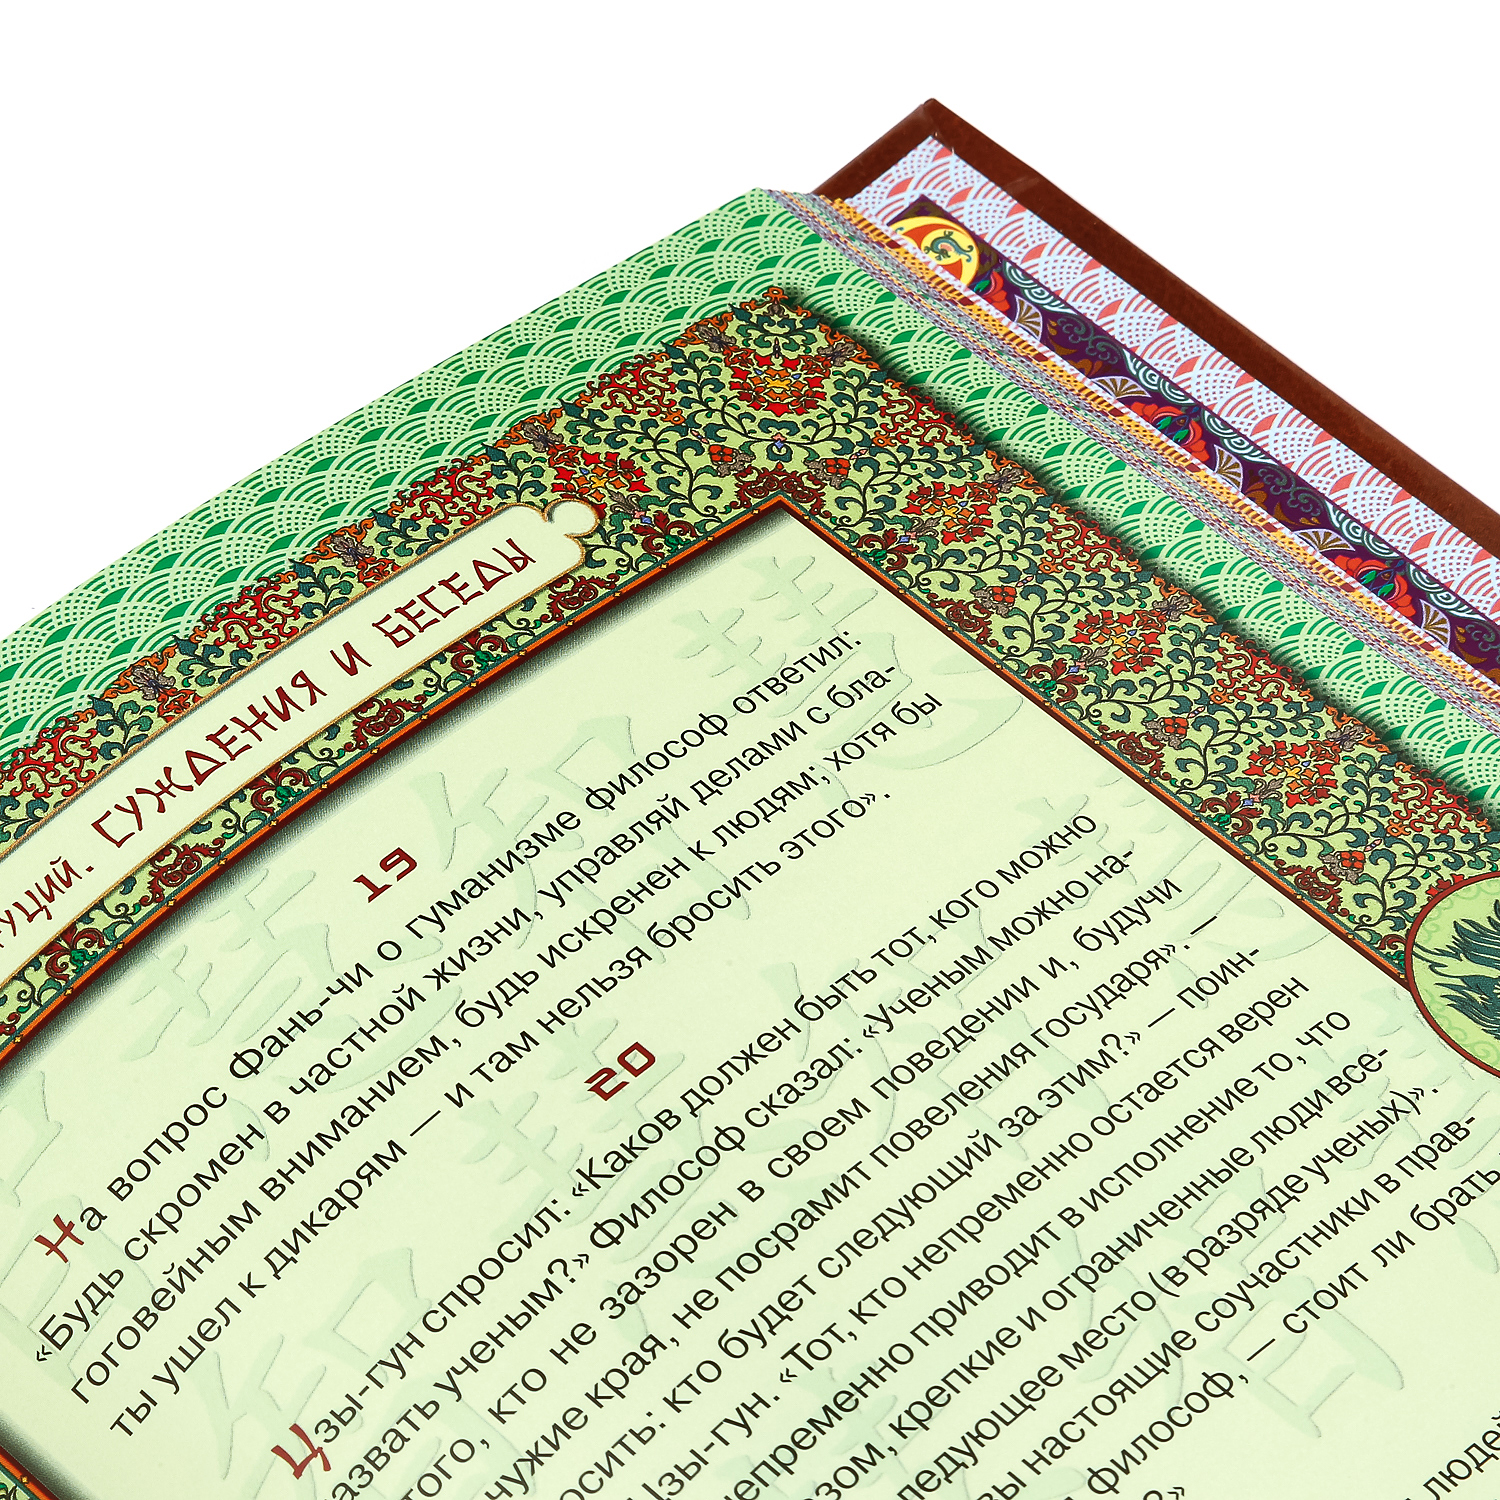 СУЖДЕНИЯ И БЕСЕДЫ
19
На вопрос Фань-чи о гуманизме философ ответил:
«Будь скромен в частной жизни, управляй делами с бла-
гоговейным вниманием, будь искренен к людям; хотя бы
ты ушел к дикарям — и там нельзя бросить этого».
20
Цзы-гун спросил: «Каков должен быть тот, кого можно
назвать ученым?» Философ сказал: «Ученым можно на-
того, кто не зазорен в своем поведении и, будучи
чужие края, не посрамит повеления государя». —
кто будет следующий за этим?» — поин-
Цзы-гун. «Тот, кто непременно остается верен
непременно приводит в исполнение то, что
крепкие и ограниченные люди все-
следующее место (в разряде ученых)».
настоящие соучастники в прав-
философ, — стоит ли брать
людей